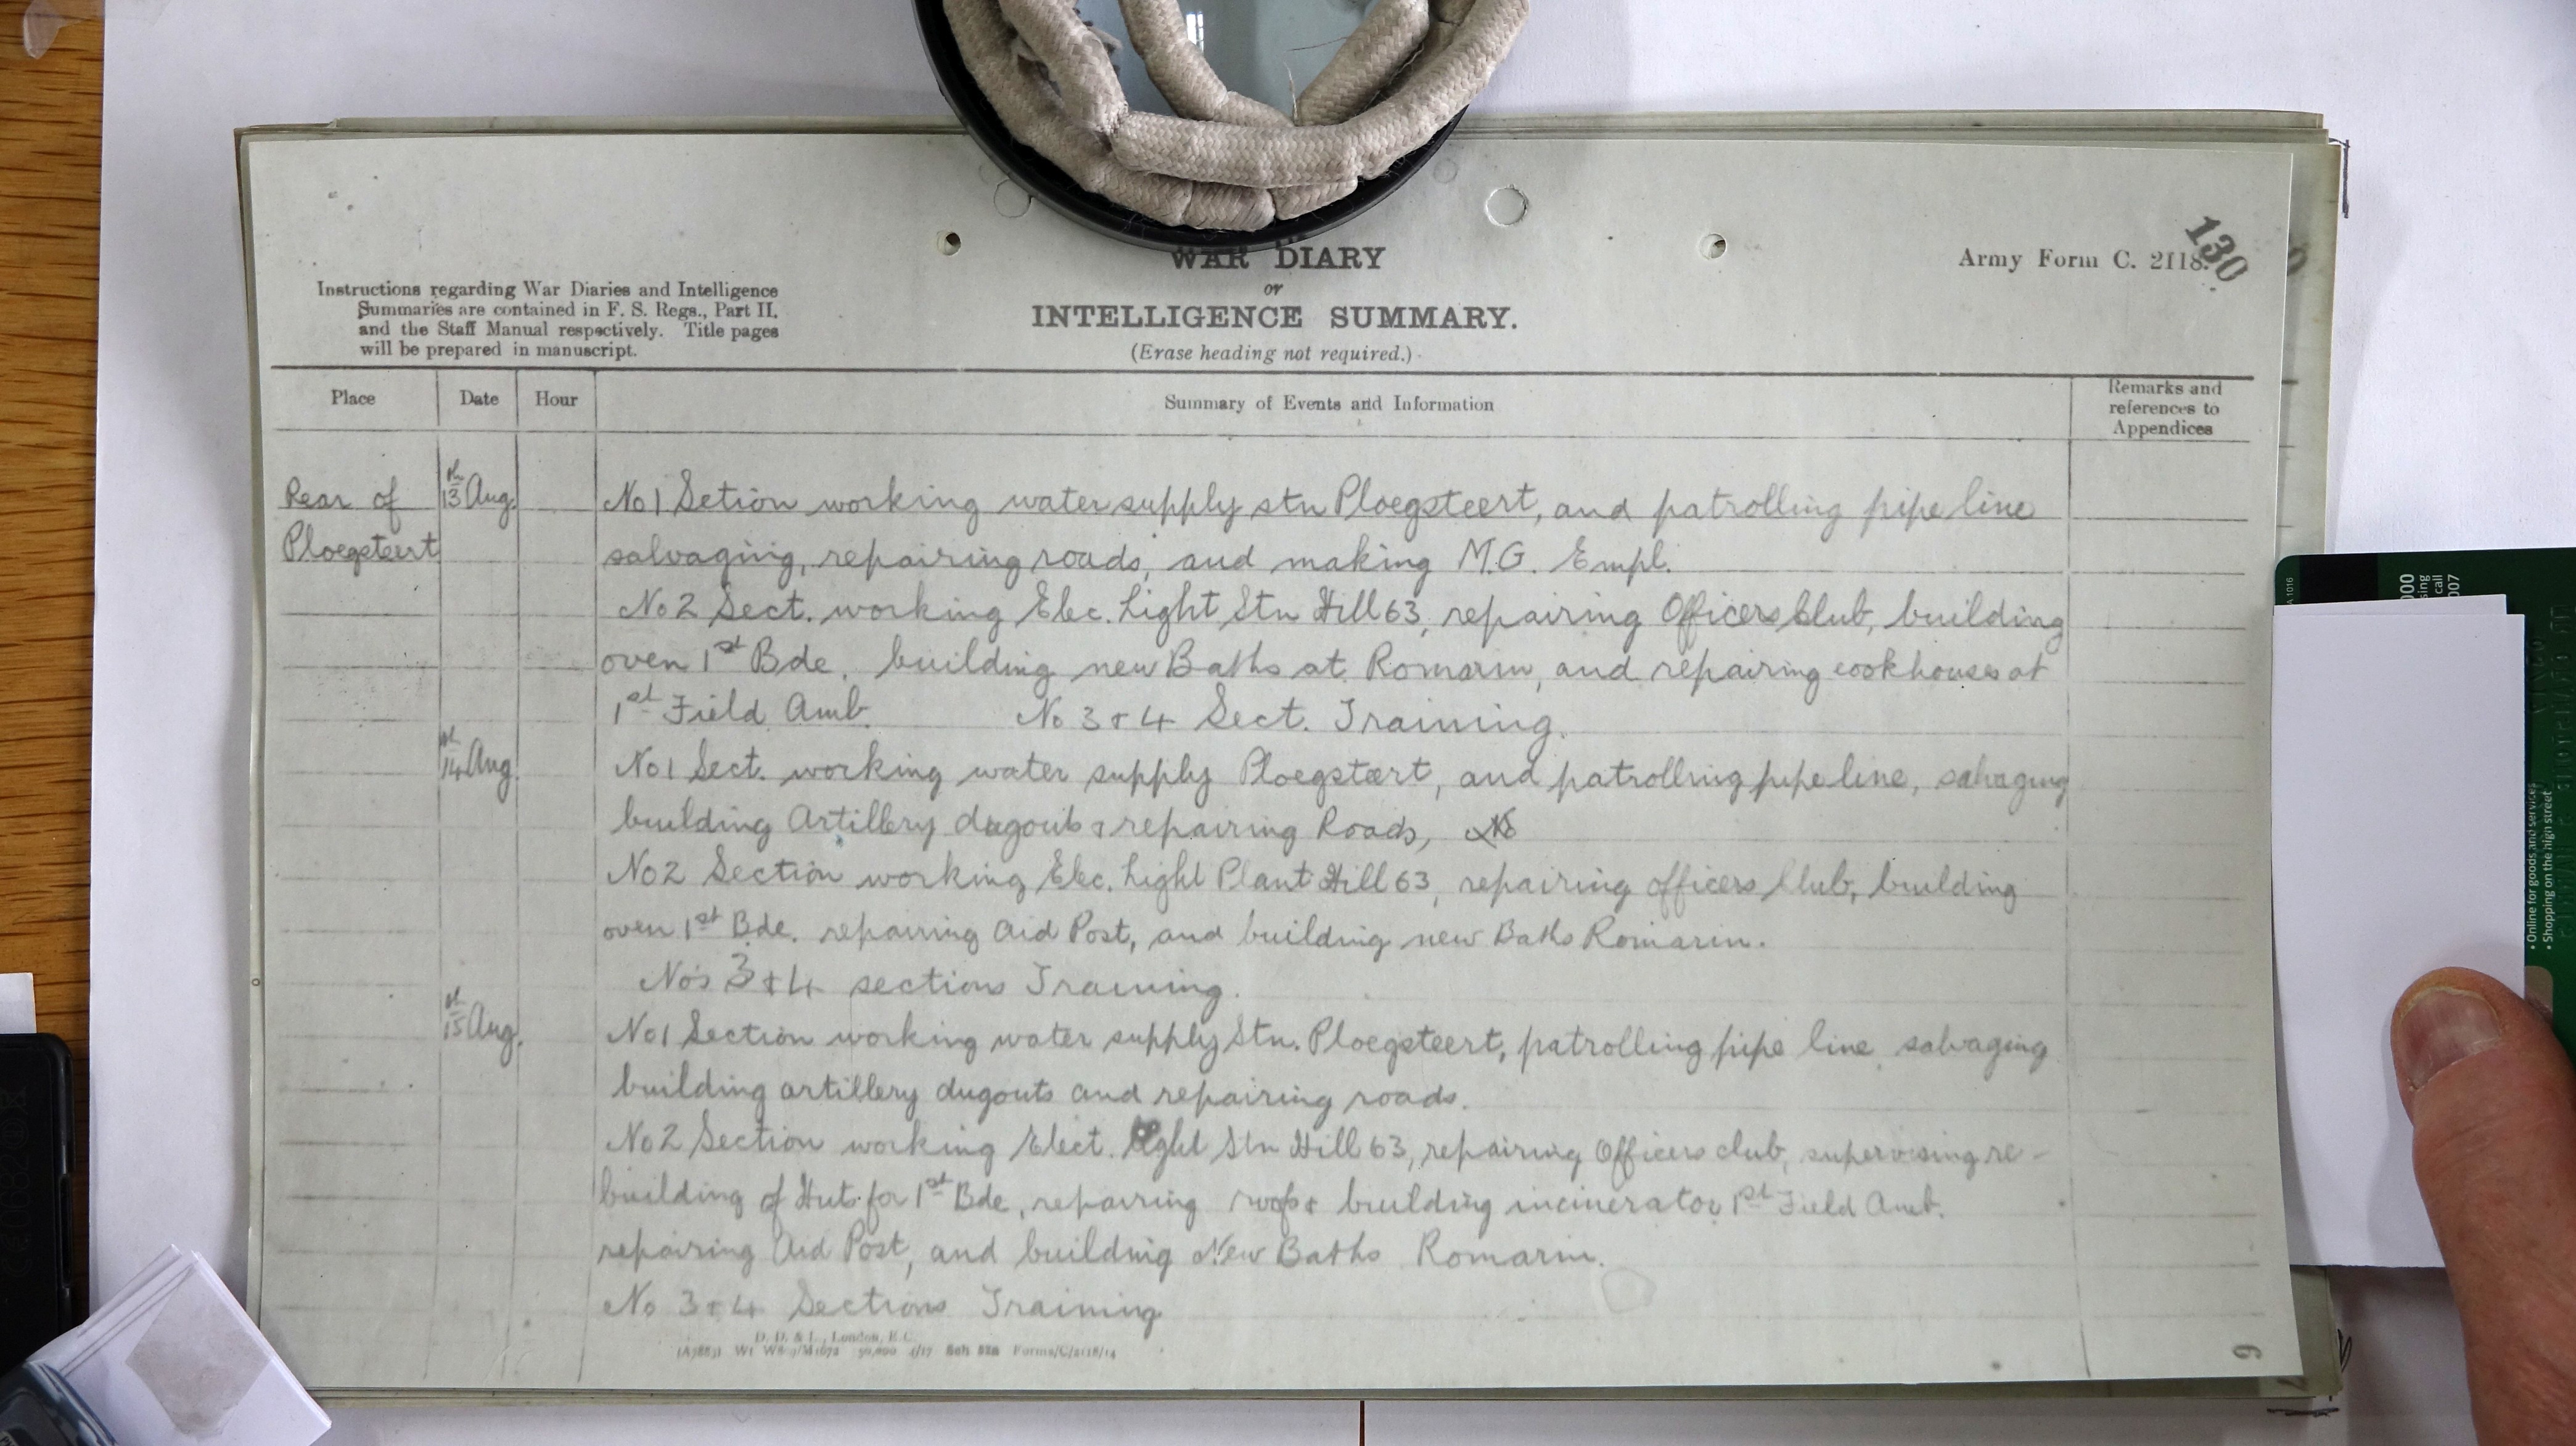 130
WAR DIARY
Army Form C. 2118.
or
Instructions regarding War Diaries and Intelligence
Summaries are contained in F. S. Regs., Part II.
and the Staff Manual respectively. Title pages
will be prepared in manuscript.
INTELLIGENCE SUMMARY.
(Erase heading not required.)
Place Date Hour Summary of Events and Information Remarks and
references to
Appendices
Rear of 13th Aug. No 1 Setion working water supply stn Ploegsteert, and patrolling pipe line
Ploegsteert salvaging, repairing roads, and making M.G. Empl.
No 2 Sect. working Elec. Light Stn Hill 63, repairing Officers Club, building
oven 1st Bde. building new Baths at Romarin, and repairing cookhouses at
1st Field Amb. No 3 & 4 Sect. Training.
14th Aug. No 1 Sect. working water supply Ploegsteert, and patrolling pipe line, salvaging
building Artillery dugouts & repairing Roads, No
No 2 Section working Elec. Light Plant Hill 63, repairing officers Club, building
oven 1st Bde. repairing Aid Post, and building new Baths Romarin.
No's 3 & 4 sections Training.
15th Aug. No 1 Section working water supply Stn. Ploegsteert, patrolling pipe line salvaging
building artillery dugouts and repairing roads.
No 2 Section working Elect. Light Stn Hill 63, repairing Officers club, supervising re-
building of Huts for 1st Bde, repairing roofs & building incinerator 1st Field Amb.
repairing Aid Post, and building New Baths Romarin.
No 3 & 4 Sections Training
D. D. & L., London, E.C.
Forms/C/2118/14
9
• Online for goods and services
• Shopping on the high street